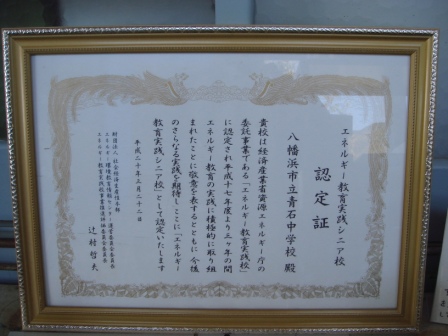 エネルギー教育実践シニア校
認定証
八幡浜市立青石中学校 殿
貴校は経済産業省資源エネルギー庁の
委託事業である「エネルギー教育実践校」
に認定され平成十七年度より三ヶ年の間
エネルギー教育の実践に積極的に取り組
まれたことに敬意を表するとともに今後
のさらなる実践を期待しここに「エネルギー
教育実践シニア校」として認定いたします
平成二十年三月二十二日
財団法人 社会経済生産性本部
エネルギー環境教育情報センター運営委員会委員長
辻村哲夫